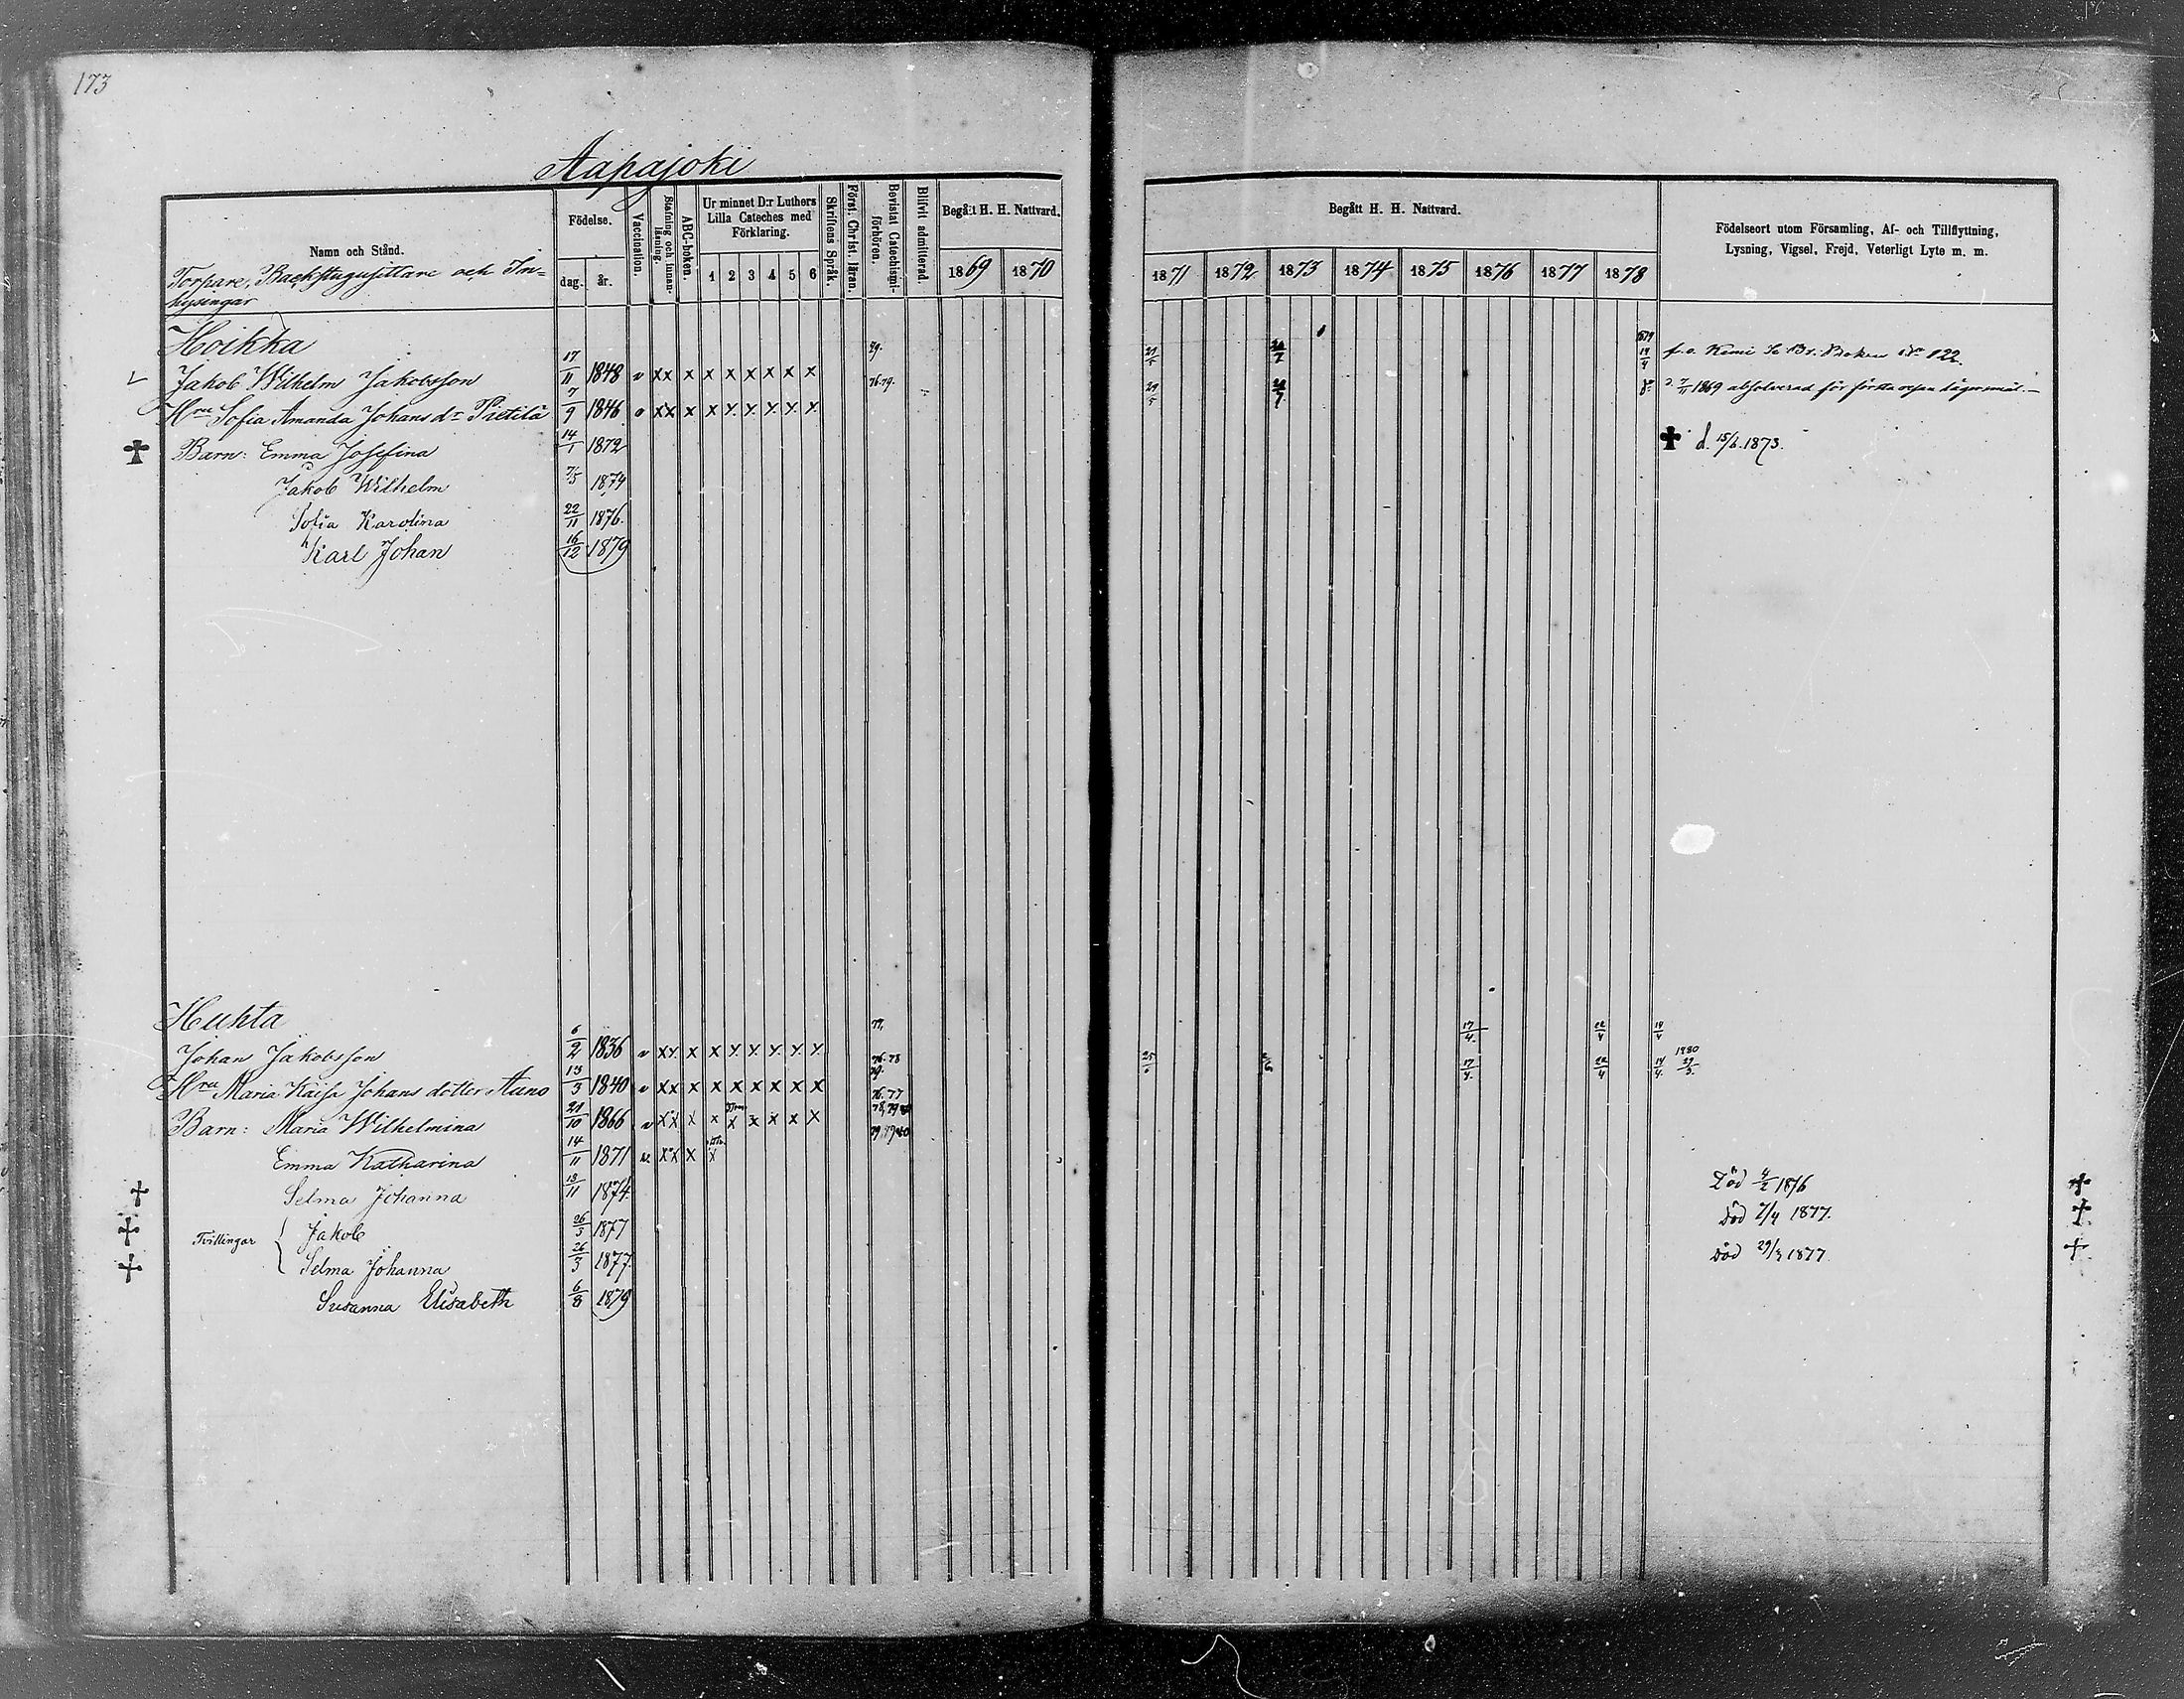 173
Aapajoki
Namn och Stånd.
Torpare, Backstugusittare och In-
hysingar
Födelse.
dag.
år.
Vaccination.
Stafning och innan-
läsning.
ABC-boken.
Ur minnet D:r Luthers
Lilla Cateches med
Förklaring.
1 2 3 4 5 6
Skriftens Språk.
Först. Christ. läran.
Bevistat Catechismi-
förhören.
Blifvit admitterad.
Begått H. H. Nattvard.
1869 1870
Begått H. H. Nattvard.
1871 1872 1873 1874 1875 1876 1877 1878
Födelseort utom Församling, Af- och Tillflyttning,
Lysning, Vigsel, Frejd, Veterligt Lyte m. m.
Hoikka
Jakob Wilhelm Jakobsson 17/11 1848 v xx x x x x x x x 79. 1879 19/4
Hru Sofia Amanda Johansdr Pietilä 7/9 1846 xx x x x x x x x 76.79. 1869 absolverad för första resan lägersmål.
Barn: Emma Josefina 14/1 1872 d. 15/6.1873.
Jakob Wilhelm 7/5 1874
Sofia Karolina 22/11 1876.
Karl Johan 16/12 1879
Huhta
Johan Jakobsson 6/2 1836 v xx x x x x x x x 17/4 22/4 19/4
Hru Maria Kaisa Johans dotter Auno 13/3 1840 v xx x x x x x x x 76.78 79. 17/4. 22/4 14/4. 1880
Barn: Maria Wilhelmina 21/10 1866 v xx x x x x x x x 76.77 78,79
Emma Katharina 14/11 1871 xx x x
Selma Johanna 13/11 1874. Död 4/2 1876
Tvillingar
Jakob 26/3 1877 Död 7/4 1877.
Selma Johanna 26/3 1877. Död 29/3 1877
Susanna Elisabeth 6/8 1879